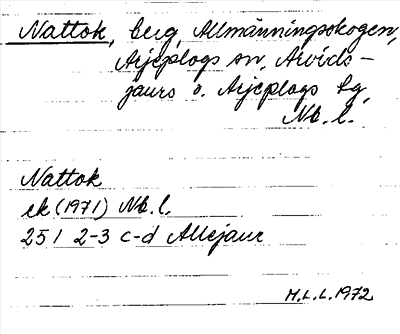 Nattok, berg, Allmänningsskogen,
Arjeplogs sn, Arvids-
jaurs o. Arjeplogs tg,
Nb. l.
Nattok
ek (1971) Nb. l.
251 2-3 c-d Allejaur
M.L.L. 1972